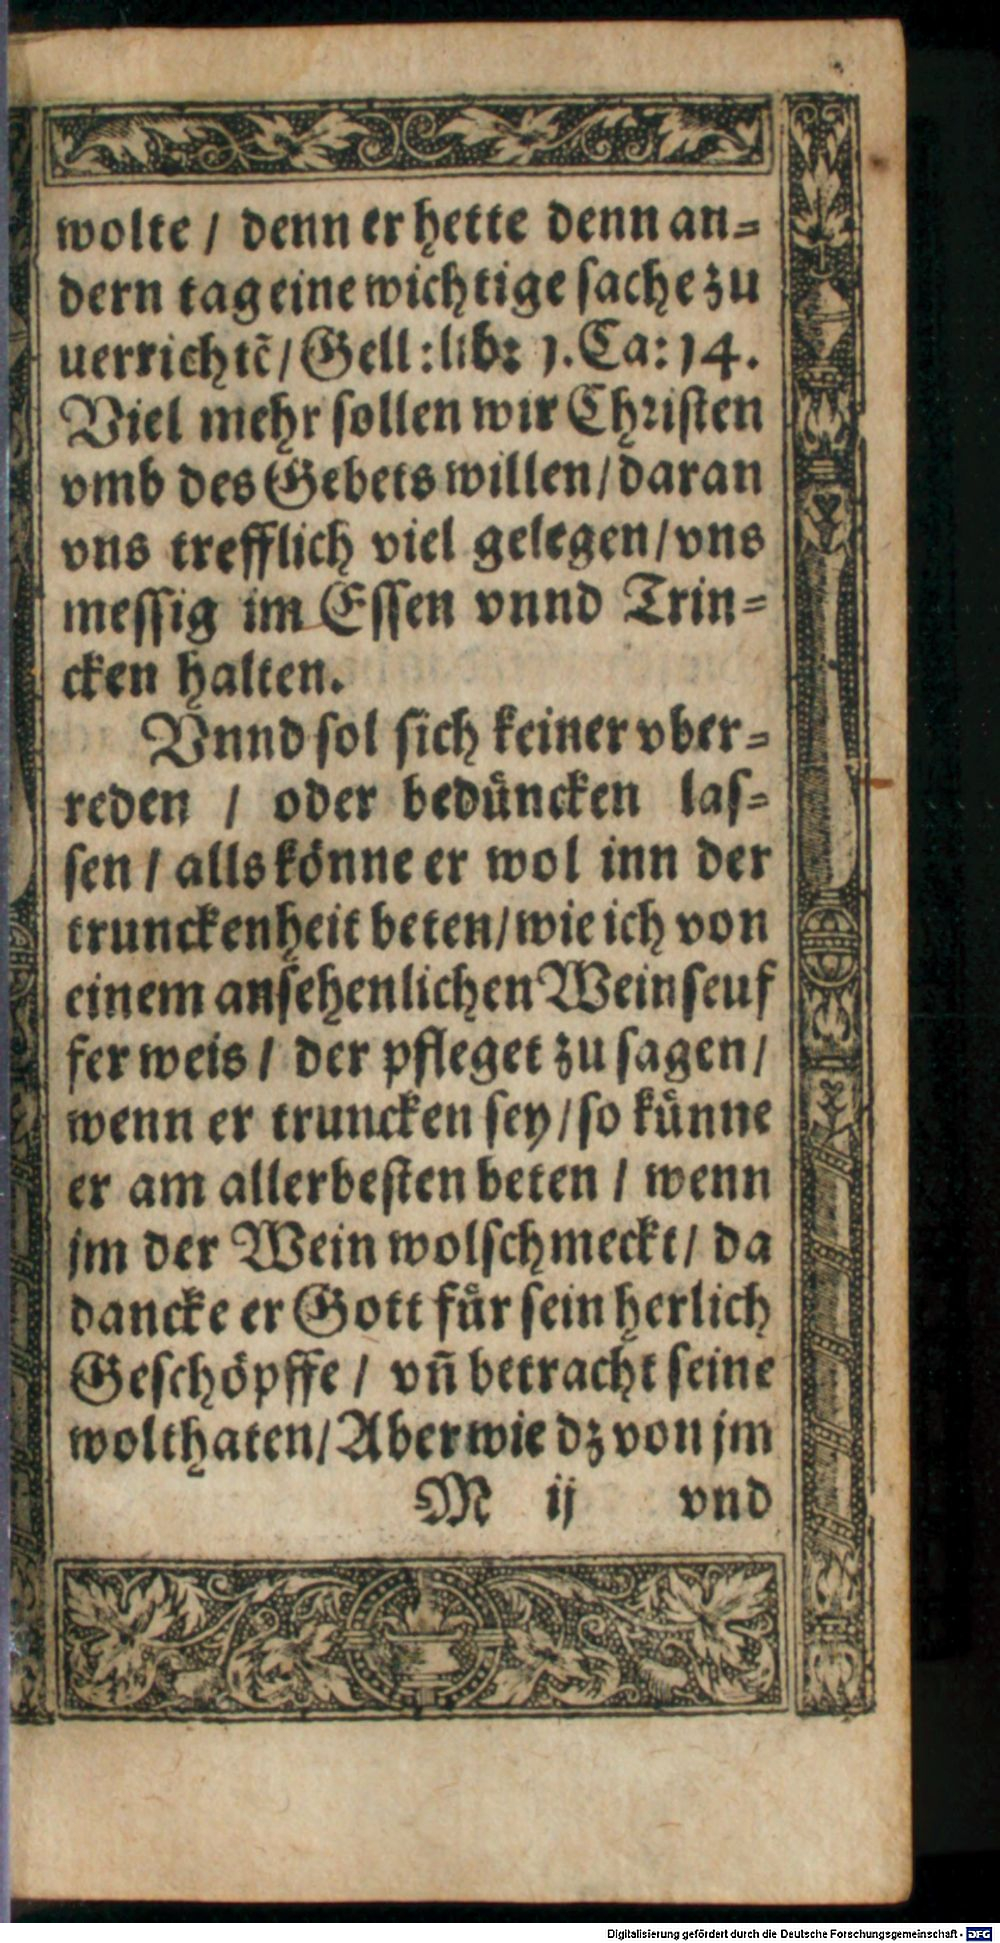 wolte / denn er hette denn an=
dern tag eine wichtige sache zu
uerrichtē / Gell: lib: 1. Ca: 14.
Viel mehr sollen wir Christen
vmb des Gebets willen / daran
vns trefflich viel gelegen / vns
messig im Essen vnnd Trin=
cken halten.
Vnnd sol sich keiner vber=
reden / oder bedüncken las=
sen / alls könne er wol inn der
trunckenheit beten / wie ich von
einem ansehenlichen Weinseuf
fer weis / der pfleget zu sagen /
wenn er truncken sey / so künne
er am allerbesten beten / wenn
jm der Wein wolschmeckt / da
dancke er Gott für sein herlich
Geschöpffe / vn̄ betracht seine
wolthaten / Aber wie dz von jm
M ij vnd
Digitalisierung gefördert durch die Deutsche Forschungsgemeinschaft - DFG